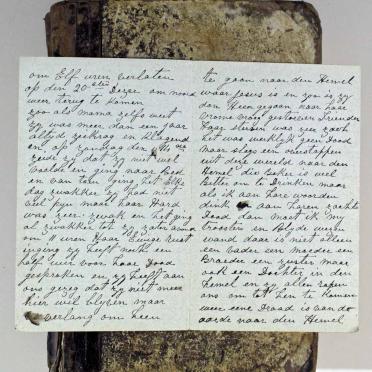 om Elf uren verlaten
op den 20sten Dezer om nooit
weer terug te komen
zoo als mama zelfs weet
zy was meer dan een jaar
altyd ziek en klagend
en op zondag den
zeide zy dat zy niet wel
voelde en ging naar Bed
en van toen ging het Elke
dag zwakker zy had niet
veel pyn maar haar Hard
was zeer zwak en het ging
al zwakker tot zy zater
om 11 uren haar Eeuwige rust
inging zy heeft nog een
half uur voor haar Dood
gesproken en zy heeft aan
ons gezeg dat zy niet meer
hier wil blyven maar
verlang om heen
te gaan naar den Hemel
waar Jesus is en zoo is zy
dan Heen gegaan naar haar
vrome vroeg gestorven
Haar sterven was zeer zach
het was werklyk geen Dood
maar slegs een overstap
uit deze wereld naar den
Hemel die zeker is veel
Better om te Drinken maar
als ik aan hare woorden
dink en aan haren zachte
Dood dan moet ik my
troosten en Blyde werden
want daar is niet alleen
een vader een moeder een
Broeder een zuster maar
ook een Dochter in den
Hemel en zy allen roepen
ons om tot hen te komen
weer eene Draad is van de
aarde naar den Hemel